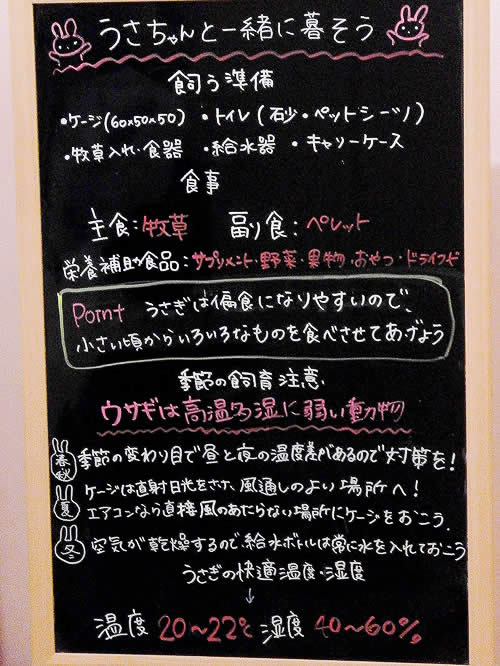 うさちゃんと一緒に暮そう
飼う準備
・ケージ(60×50×50) ・トイレ(砂・ペットシーツ)
・牧草入れ・食器 ・給水器 ・キャリーケース
食事
主食:牧草 副り食:ペレット
栄養補助食品:サプリメント・野菜・果物・おやつ・ドライフード
Point うさぎは偏食になりやすいので、
小さい頃からいろいろなものを食べさせてあげよう
季節の飼育注意
ウサギは高温多湿に弱い動物
春秋 季節の変わり目で昼と夜の温度差があるので対策を!
夏 ケージは直射日光をさけ、風通しのよい場所へ!
エアコンなら直接風のあたらない場所にケージをおこう.
冬 空気が乾燥するので、給水ボトルは常に水を入れておこう
うさぎの快適温度・湿度
↓
温度 20〜22℃ 湿度 40〜60%